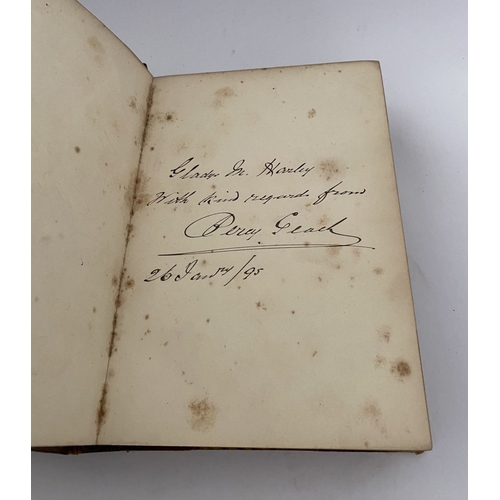 Gladys M. Harley
With kind regards from
Percy Geach
26 Janry/95